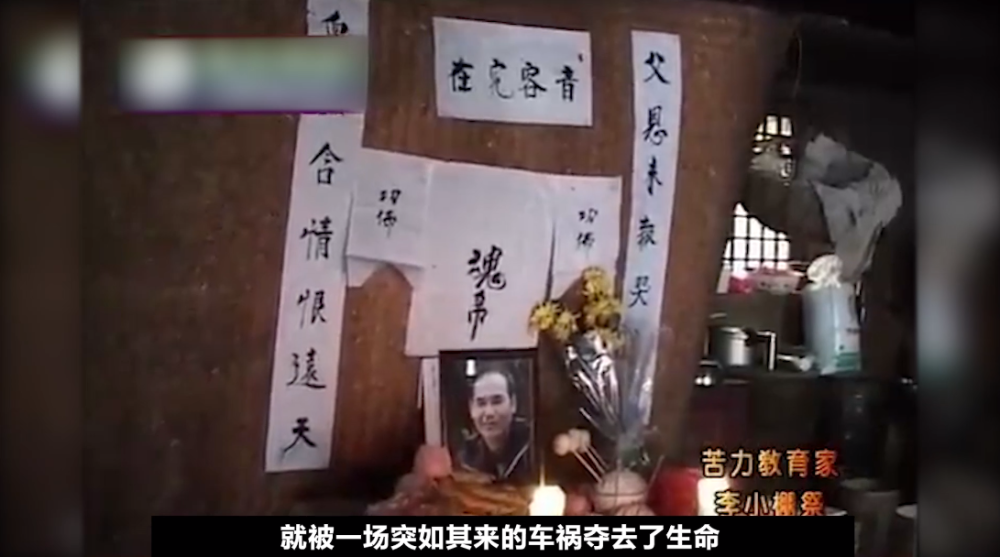 音容宛在
父恩未報哭
含情恨遠天
魂帛
苦力教育家
李小棚祭
就被一场突如其来的车祸夺去了生命